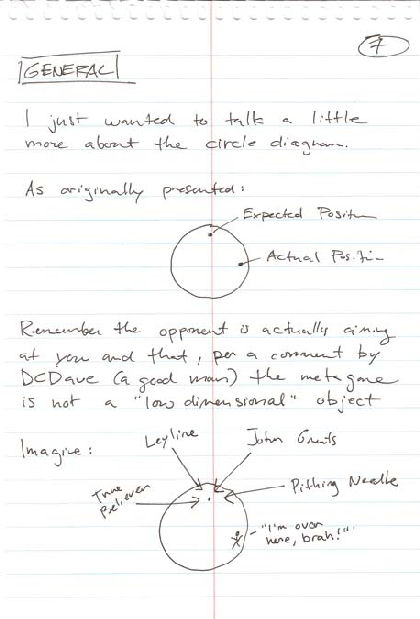 7
GENERAL
I just wanted to talk a little
more about the circle diagram.
As originally presented:
Expected Position
Actual Position
Remember the opponent is actually aiming
at you and that, per a comment by
DCDave (a good man) the metagame
is not a "low dimensional" object
Imagine:
Leyline
John Grunts
True
Believer
Pithing Needle
"I'm over
here, brah!"